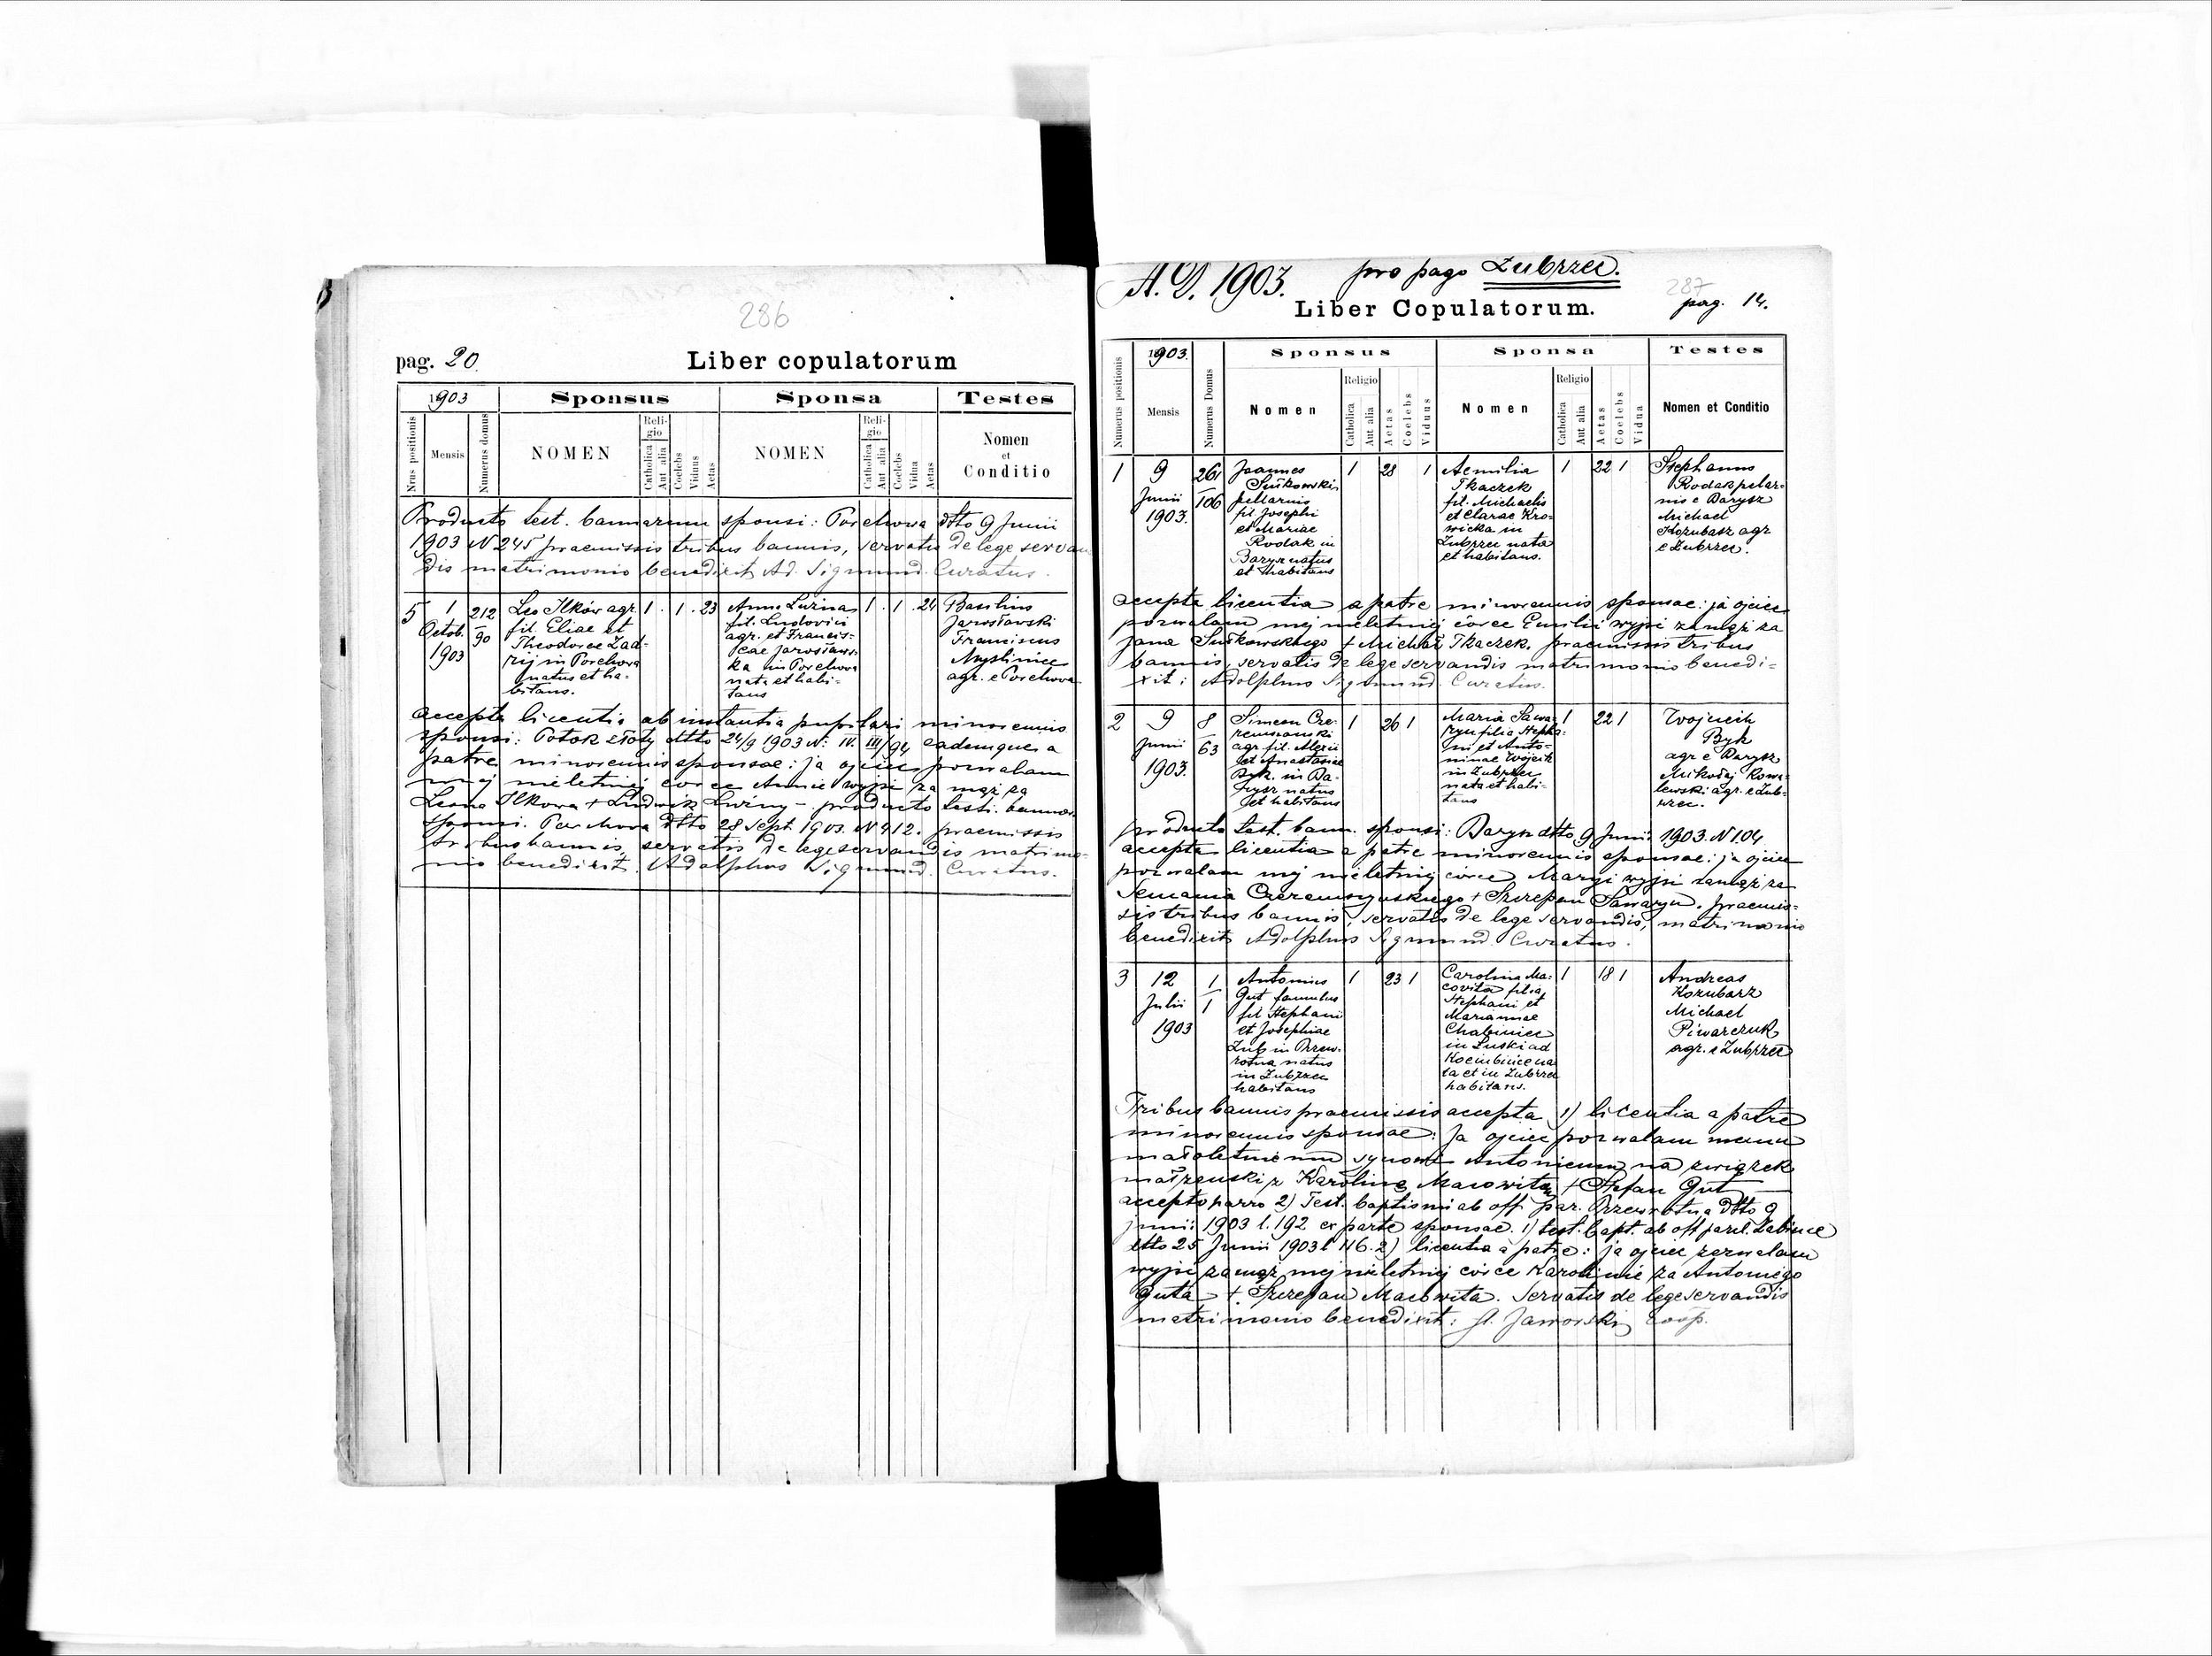 286
pag. 20.
Liber copulatorum
1903
Sponsus
Sponsa
Testes
Nrus positionis
Mensis
Numerus domus
NOMEN
Religio
Catholica
Aut alia
Coelebs
Viduus
Aetas
NOMEN
Religio
Catholica
Aut alia
Coelebs
Vidua
Aetas
Nomen
et
Conditio
Producto test. bannorum sponsi: Porchowa dtto 9 Junii
1903 N 245 praemissis tribus bannis, servatis de lege servan
dis matrimonio benedixit Ad. Sigmund. Curatus.
5
1
Octob.
1903
212
90
Leo Ilków agr.
fil. Eliae et
Theodorae Zad-
rij in Porchowa
natus et ha-
bitans.
1 . 1 . 23
Anna Luzina
fil. Ludovici
agr. et Francis-
cae Jarosławs-
ka in Porchowa
nata et habi-
tans
1 . 1 . 24
Basilius
Jarosławski
Franciscus
Myslinice
agr. e Porchowa
accepta licentia ab instantia pupilari minorennis
sponsi: Potok złoty dtto 24/9 1903 N: IV. III/94 eademque a
patre minorennis sponsae: ja ojciec pozwalam
mej nieletniej córce Annie wyjsć za mąż za
Leona Ilkowa + Ludwik - producto testi. bannor.
sponsi. Porchowa dtto 28 Sept. 1903. N 412. praemissis
tribus bannis, servatis de lege servandis matrimo-
nio benedixit. Adolphus Sigmund. Curatus.
A. D. 1903. pro pago Zubrzec.
287
pag. 14.
Liber Copulatorum.
Numerus positionis
1903.
Mensis
Numerus Domus
Sponsus
Nomen
Religio
Catholica
Aut alia
Aetas
Coelebs
Viduus
Sponsa
Nomen
Religio
Catholica
Aut alia
Aetas
Coelebs
Vidua
Testes
Nomen et Conditio
1
9
Junii
1903.
261
106
Joannes
Sutkowski
pellarius
fil Josephi
et Mariae
Rodak in
Barysz natus
et habitans
1 28 1
Aemilia
Tkaczek
fil. Michaelis
et Clarae Kro-
wicka in
Zubrzec nata
et habitans.
1 22 1
Stephanus
Rodak pelar-
nis e Barysz
Michael
Kozubasz agr
e Zubrzec.
accepta licentia a patre minorennis sponsae: ja ojciec
pozwalam mej nieletniej córce Emilii wyjsć zamąż za
Jana Sutkowskiego + Michał Tkaczek. praemissis tribus
bannis, servatis de lege servandis matrimonio benedi-
xit: Adolphus Sigmund. Curatus.
2
9
Junii
1903.
8
63
Simeon Cze-
remszanski
agr. fil. Alexii
et Anastasiae
Byk. in Ba-
rysz natus
et habitans
1 26 1
Maria Sawa-
ryn filia Stepha-
ni et Anto-
ninae Wójcik
in Zubrzec
nata et habi-
tans
1 22 1
Wojciech
Byk
agr e Barysz
Mikołaj Kowa-
lewski agr. e Zub-
rzec.
producto test. bann. sponsi: Barysz dtto 9 Junii 1903. N 104
accepta licentia a patre minorennis sponsae: ja ojciec
pozwalam mej nieletniej córce Maryi wyjsć zamąż za
Semania + Szczepan Sawaryn. praemis-
sis tribus bannis, servatis de lege servandis, matrimonio
benedixit Adolphus Sigmund Curatus.
3
12
Julii
1903
1
1
Antonius
Gut famulus
fil Stephani
et Josephiae
Zub in Przew-
rotna natus
in Zubrzec
habitans
1 23 1
Carolina Ma-
covita filia
Stephani et
Mariannae
in Łuski ad
na
ta et in Zubrzec
habitans.
1 18 1
Andreas
Kozubasz
Michael
Piwarczuk
agr. e Zubrzec
Tribus bannis praemissis accepta 1) licentia a patre
minorennis sponsae: Ja ojciec pozwalam memu
małoletniemu synowi Antoniemu na związek
małżenski z Karoliną Macowitą + Stefan Gut
accepto porro 2) Test. baptismi ab off. par. Przewrotna dtto 9
junii 1903 l. 192 ex parte sponsae. 1) test. bapt. ab off paroch. Łabince
dtto 25 Junii 1903 l 116. 2) licentia a patre: ja ojciec zezwalam
wyjsć zamąż mej nieletniej córce Karolinie za Antoniego
Guta + Szczepan Macowita. Servatis de lege servandis
matrimonio benedixit: St. Jaworski coop.